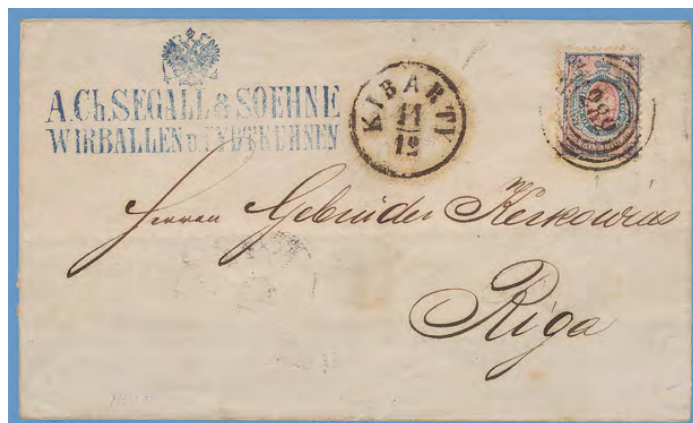 A. Ch. SEGALL & SOEHNE
WIRBALLEN u. EYDTKUHNEN
KIBARTI
11
12
Herren Gebrüder
Riga